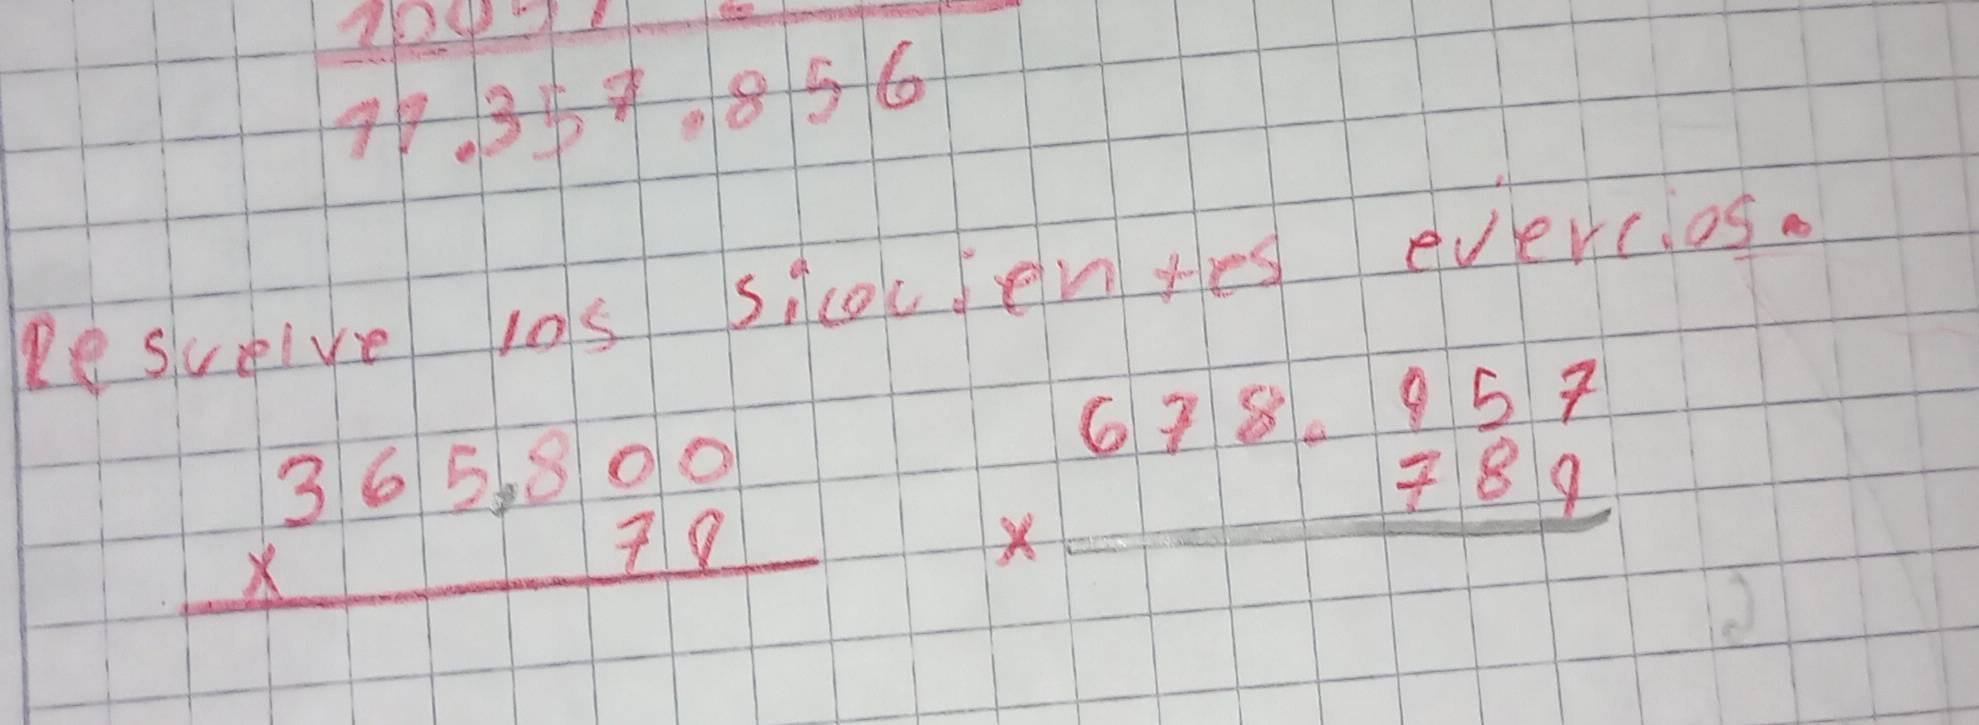 11.357.856
Resuelve los sicocientes evercios.
365.800
x 79
678.957
x 789